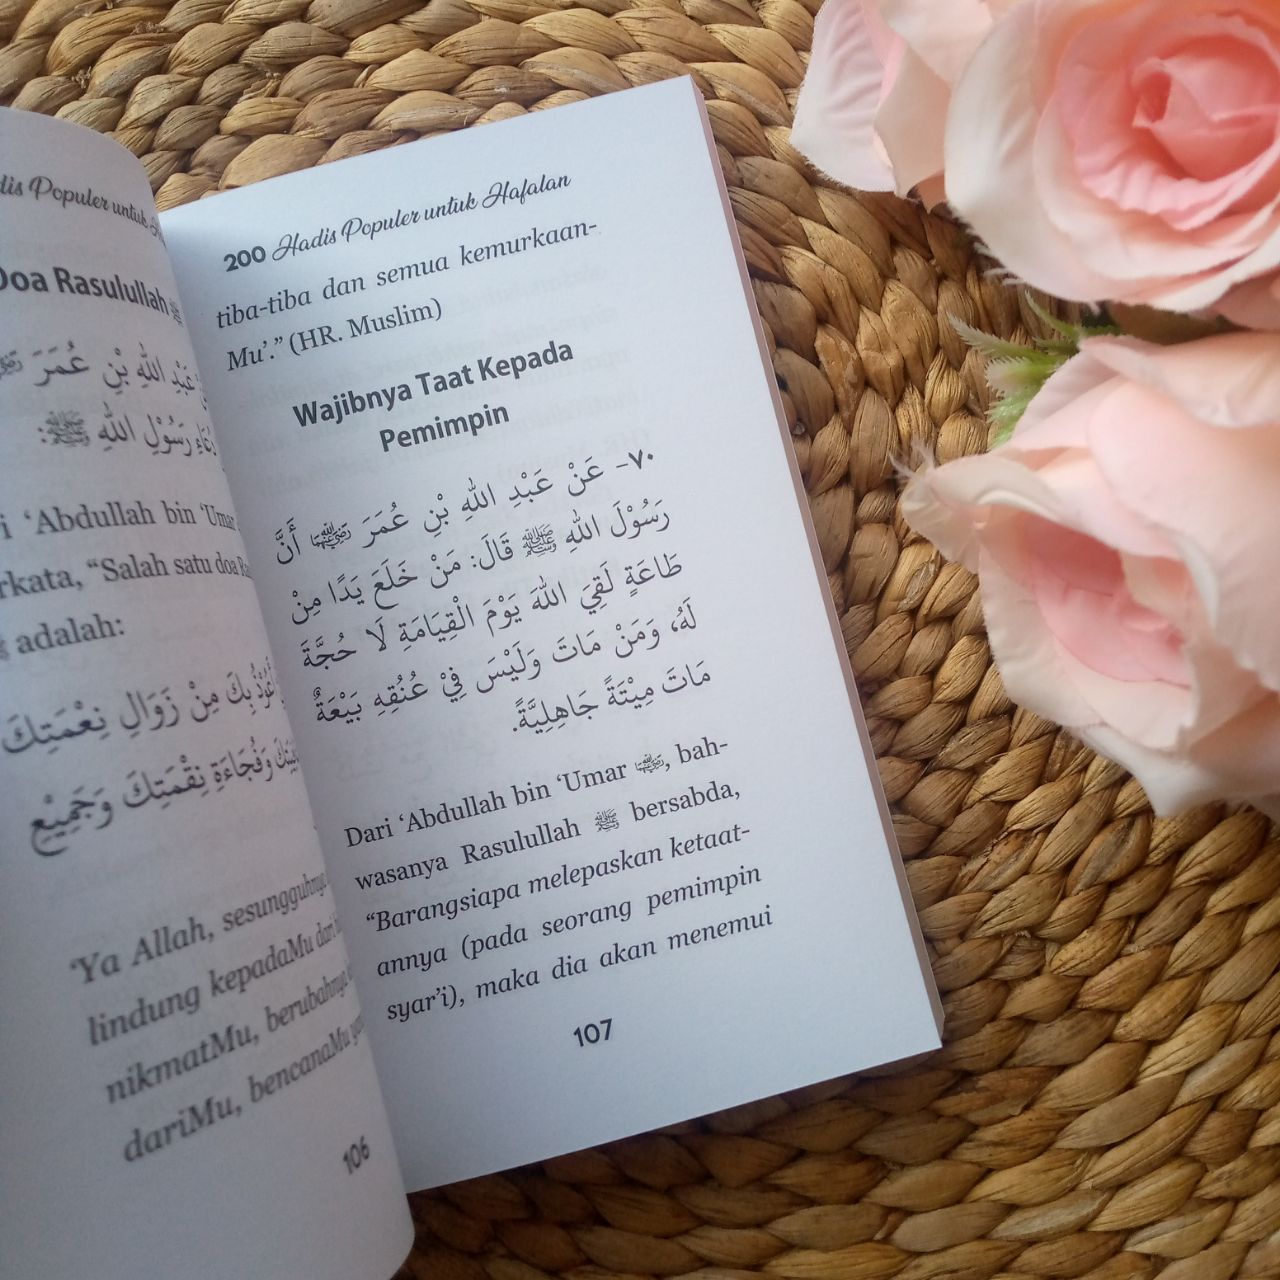 Populer untuk
Doa Rasulullah ﷺ
عَبْدِ اللهِ بْنِ عُمَرَ
رَسُوْلِ اللهِ ﷺ:
‘Abdullah bin ‘Umar
“Salah satu doa
ﷺ adalah:
بِكَ مِنْ زَوَالِ نِعْمَتِكَ
وَفُجَاءَةِ نِقْمَتِكَ وَجَمِيْعِ
‘Ya Allah, sesungguhnya
lindung kepadaMu dari
nikmatMu, berubahnya
dariMu, bencanaMu
106
200 Hadis Populer untuk Hafalan
tiba-tiba dan semua kemurkaan-
Mu’.” (HR. Muslim)
Wajibnya Taat Kepada
Pemimpin
٧٠- عَنْ عَبْدِ اللهِ بْنِ عُمَرَ رضي الله عنهما أَنَّ
رَسُوْلَ اللهِ ﷺ قَالَ: مَنْ خَلَعَ يَدًا مِنْ
طَاعَةٍ لَقِيَ اللهَ يَوْمَ الْقِيَامَةِ لَا حُجَّةَ
لَهُ، وَمَنْ مَاتَ وَلَيْسَ فِيْ عُنُقِهِ بَيْعَةٌ
مَاتَ مِيْتَةً جَاهِلِيَّةً.
Dari ‘Abdullah bin ‘Umar رضي الله عنهما, bah-
wasanya Rasulullah ﷺ bersabda,
“Barangsiapa melepaskan ketaat-
annya (pada seorang pemimpin
syar’i), maka dia akan menemui
107